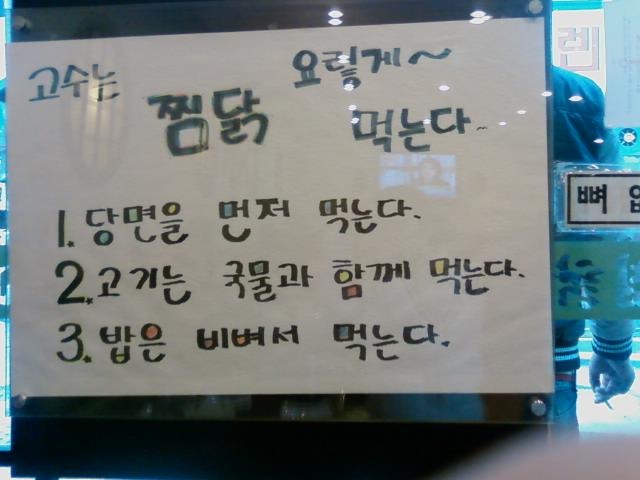 고수는 찜닭 요렇게~
먹는다..
1. 당면을 먼저 먹는다.
2. 고기는 국물과 함께 먹는다.
3. 밥은 비벼서 먹는다.
렌
뼈 없